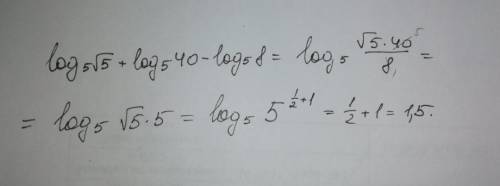 log₅√5 + log₅40 - log₅8 = log₅ (√5·40)/8 =
= log₅ √5·5 = log₅ 5^(1/2+1) = 1/2+1 = 1,5.